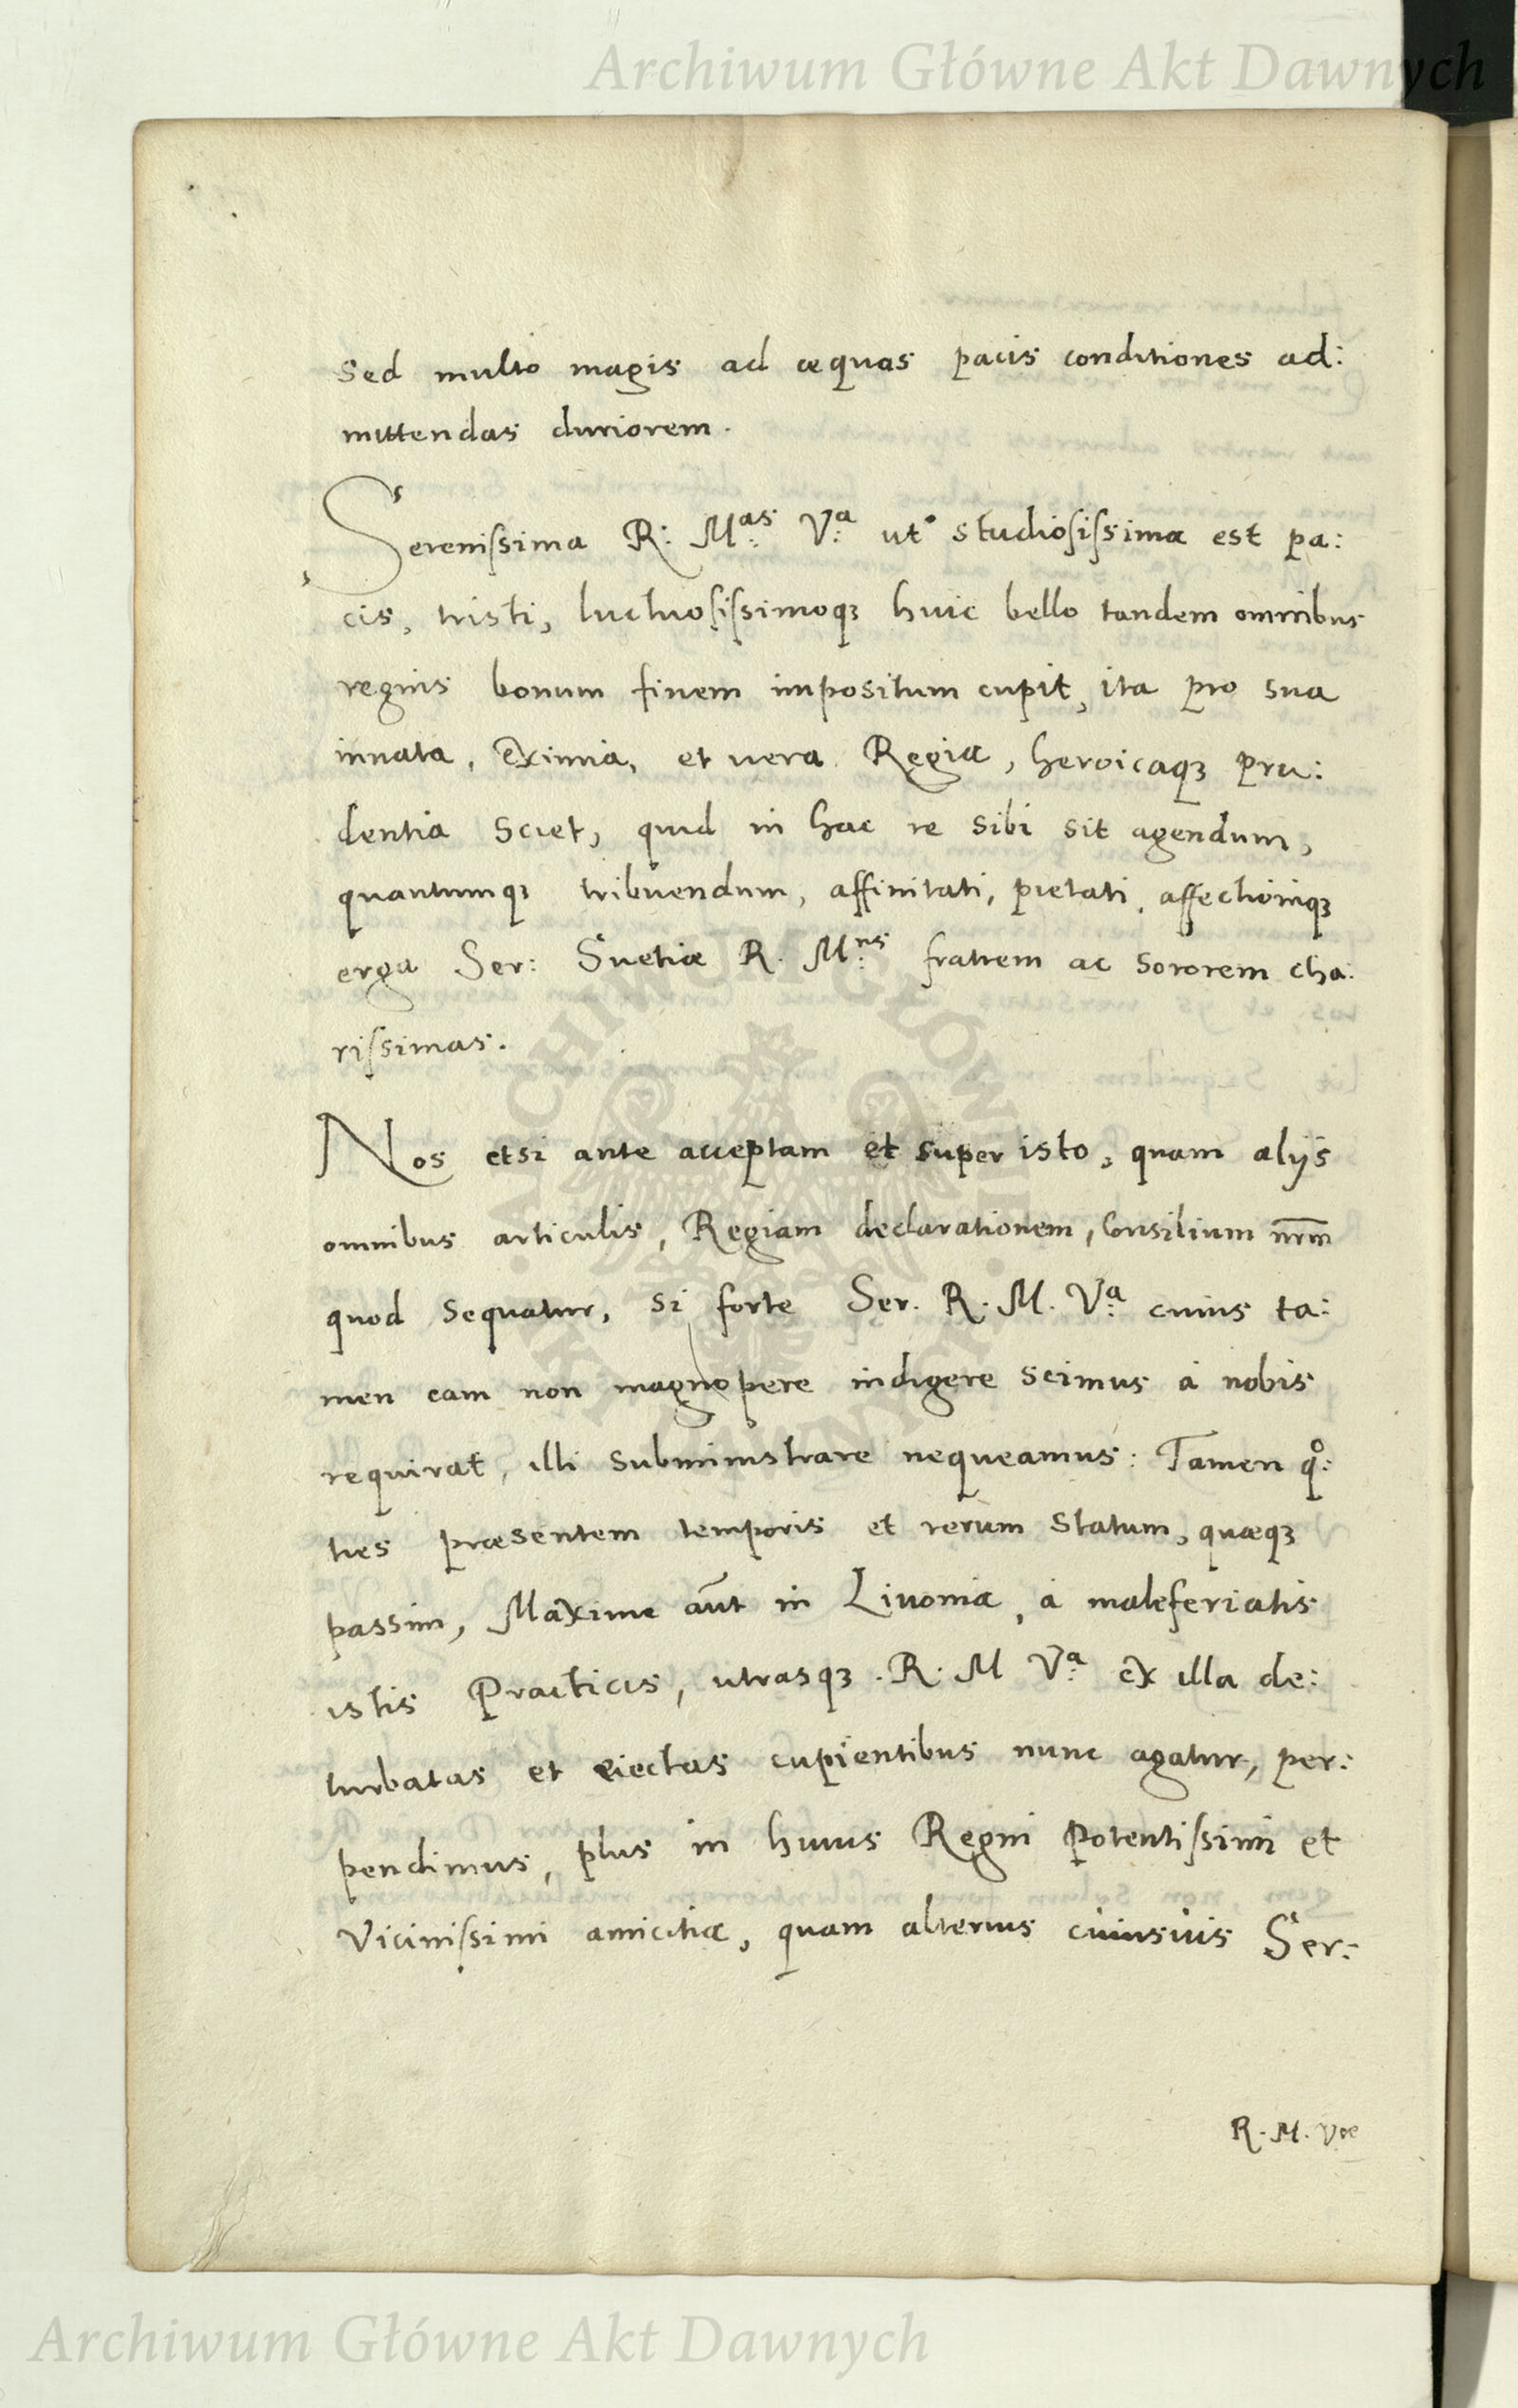 Archiwum Główne Akt Dawnych
sed multo magis ad æquas pacis conditiones ad:
mittendas duriorem.
Serenissima R: M:as V:a ut studiosissima est pa:
cis, tristi, luctuosissimoqꝫ huic bello tandem omnibus
regnis bonum finem impositum cupit, ita pro sua
innata, eximia, et vera Regia, heroicaqꝫ pru:
dentia sciet, quid in hac re sibi sit agendum,
quantumqꝫ tribuendum, affinitati, pietati, affectioniqꝫ
erga Ser: Suetiæ R. M:tis fratrem ac sororem cha:
rissimas.
Nos etsi ante acceptam et super isto, quam alijs
omnibus articulis, Regiam declarationem, Consilium nr̄m
quod sequatur, si forte Ser. R. M. V:a cuius ta:
men eam non magnopere indigere scimus à nobis
requirat, illi subministrare nequeamus: Tamen qo:
ties præsentem temporis et rerum statum, quæqꝫ
passim, Maxime aūt in Livonia, à maleferiatis
istis Practicis, utrasqꝫ R. M V:a ex illa de:
turbatas et eiectas cupientibus nunc agatur, per:
pendimus, plus in huius Regni Potentissimi et
Vicinissimi amicitia, quam alterius cuiusvis Ser:
R. M. Vræ
Archiwum Główne Akt Dawnych